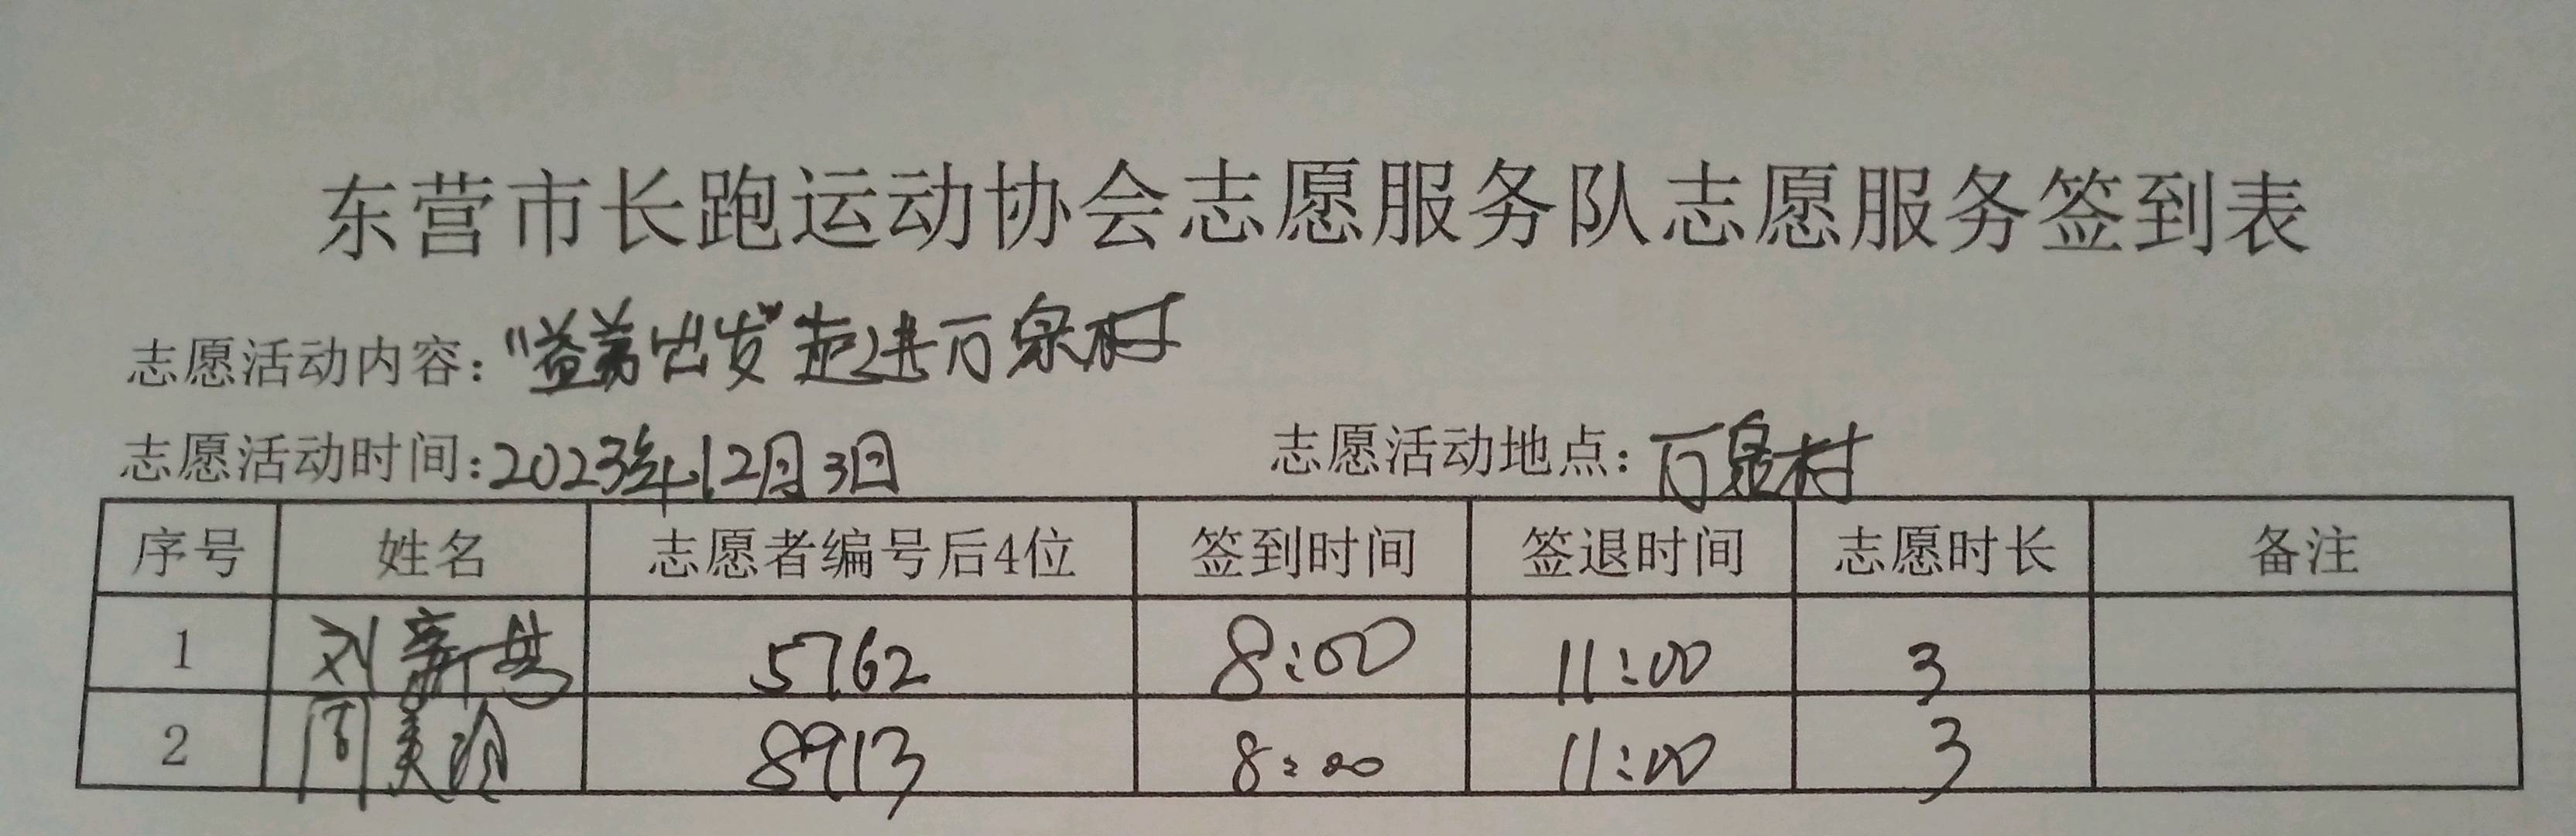 东营市长跑运动协会志愿服务队志愿服务签到表
志愿活动内容：“益美出发”走进万泉村
志愿活动时间：2023年12月3日 志愿活动地点：万泉村
序号 姓名 志愿者编号后4位 签到时间 签退时间 志愿时长 备注
1 刘新 5762 8:00 11:00 3
2 周美玲 8913 8:00 11:00 3